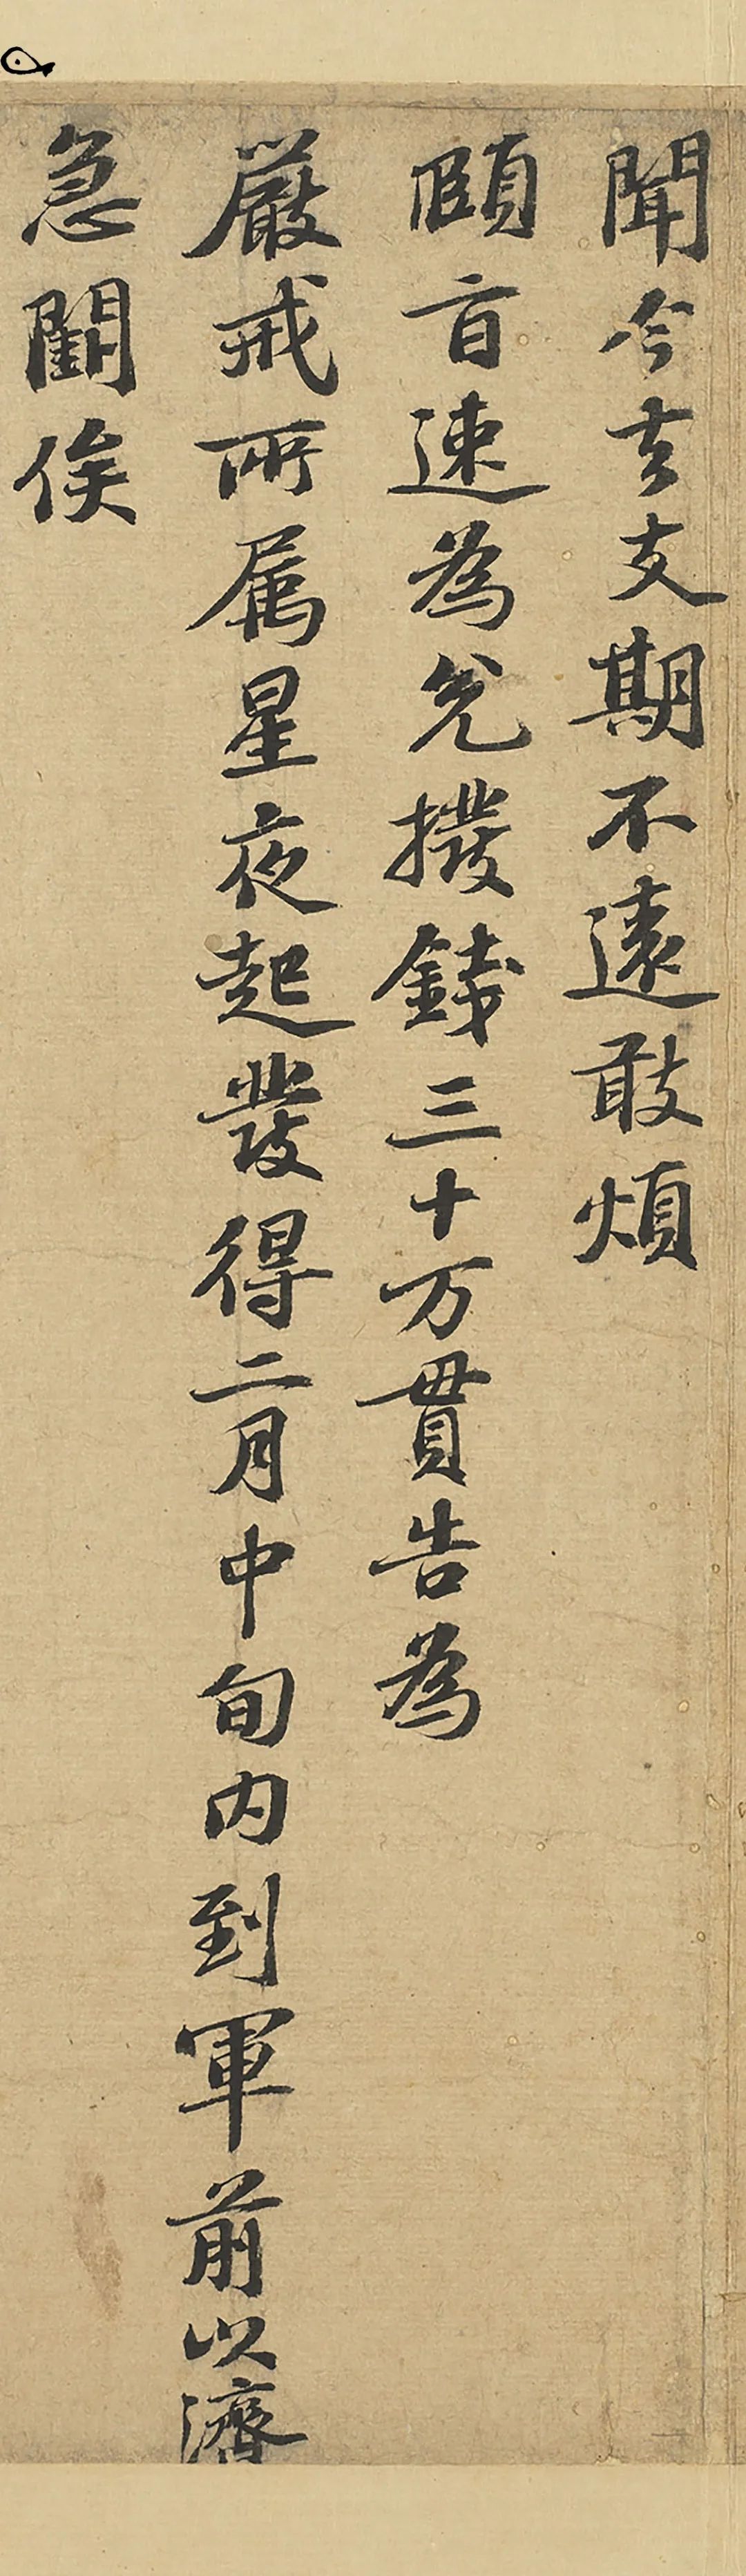 聞今去支期不遠敢煩
頤旨速為兊撥錢三十万貫告為
嚴戒所属星夜起發得二月中旬内到軍前以濟
急闕俟